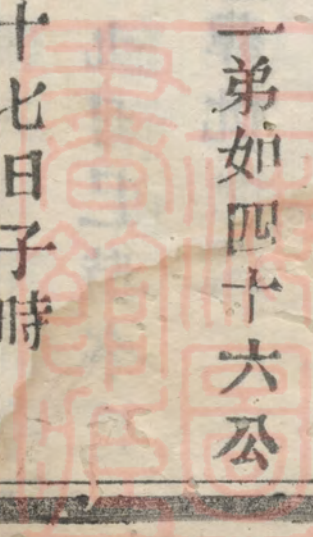 一弟如四十六公
十七日子時